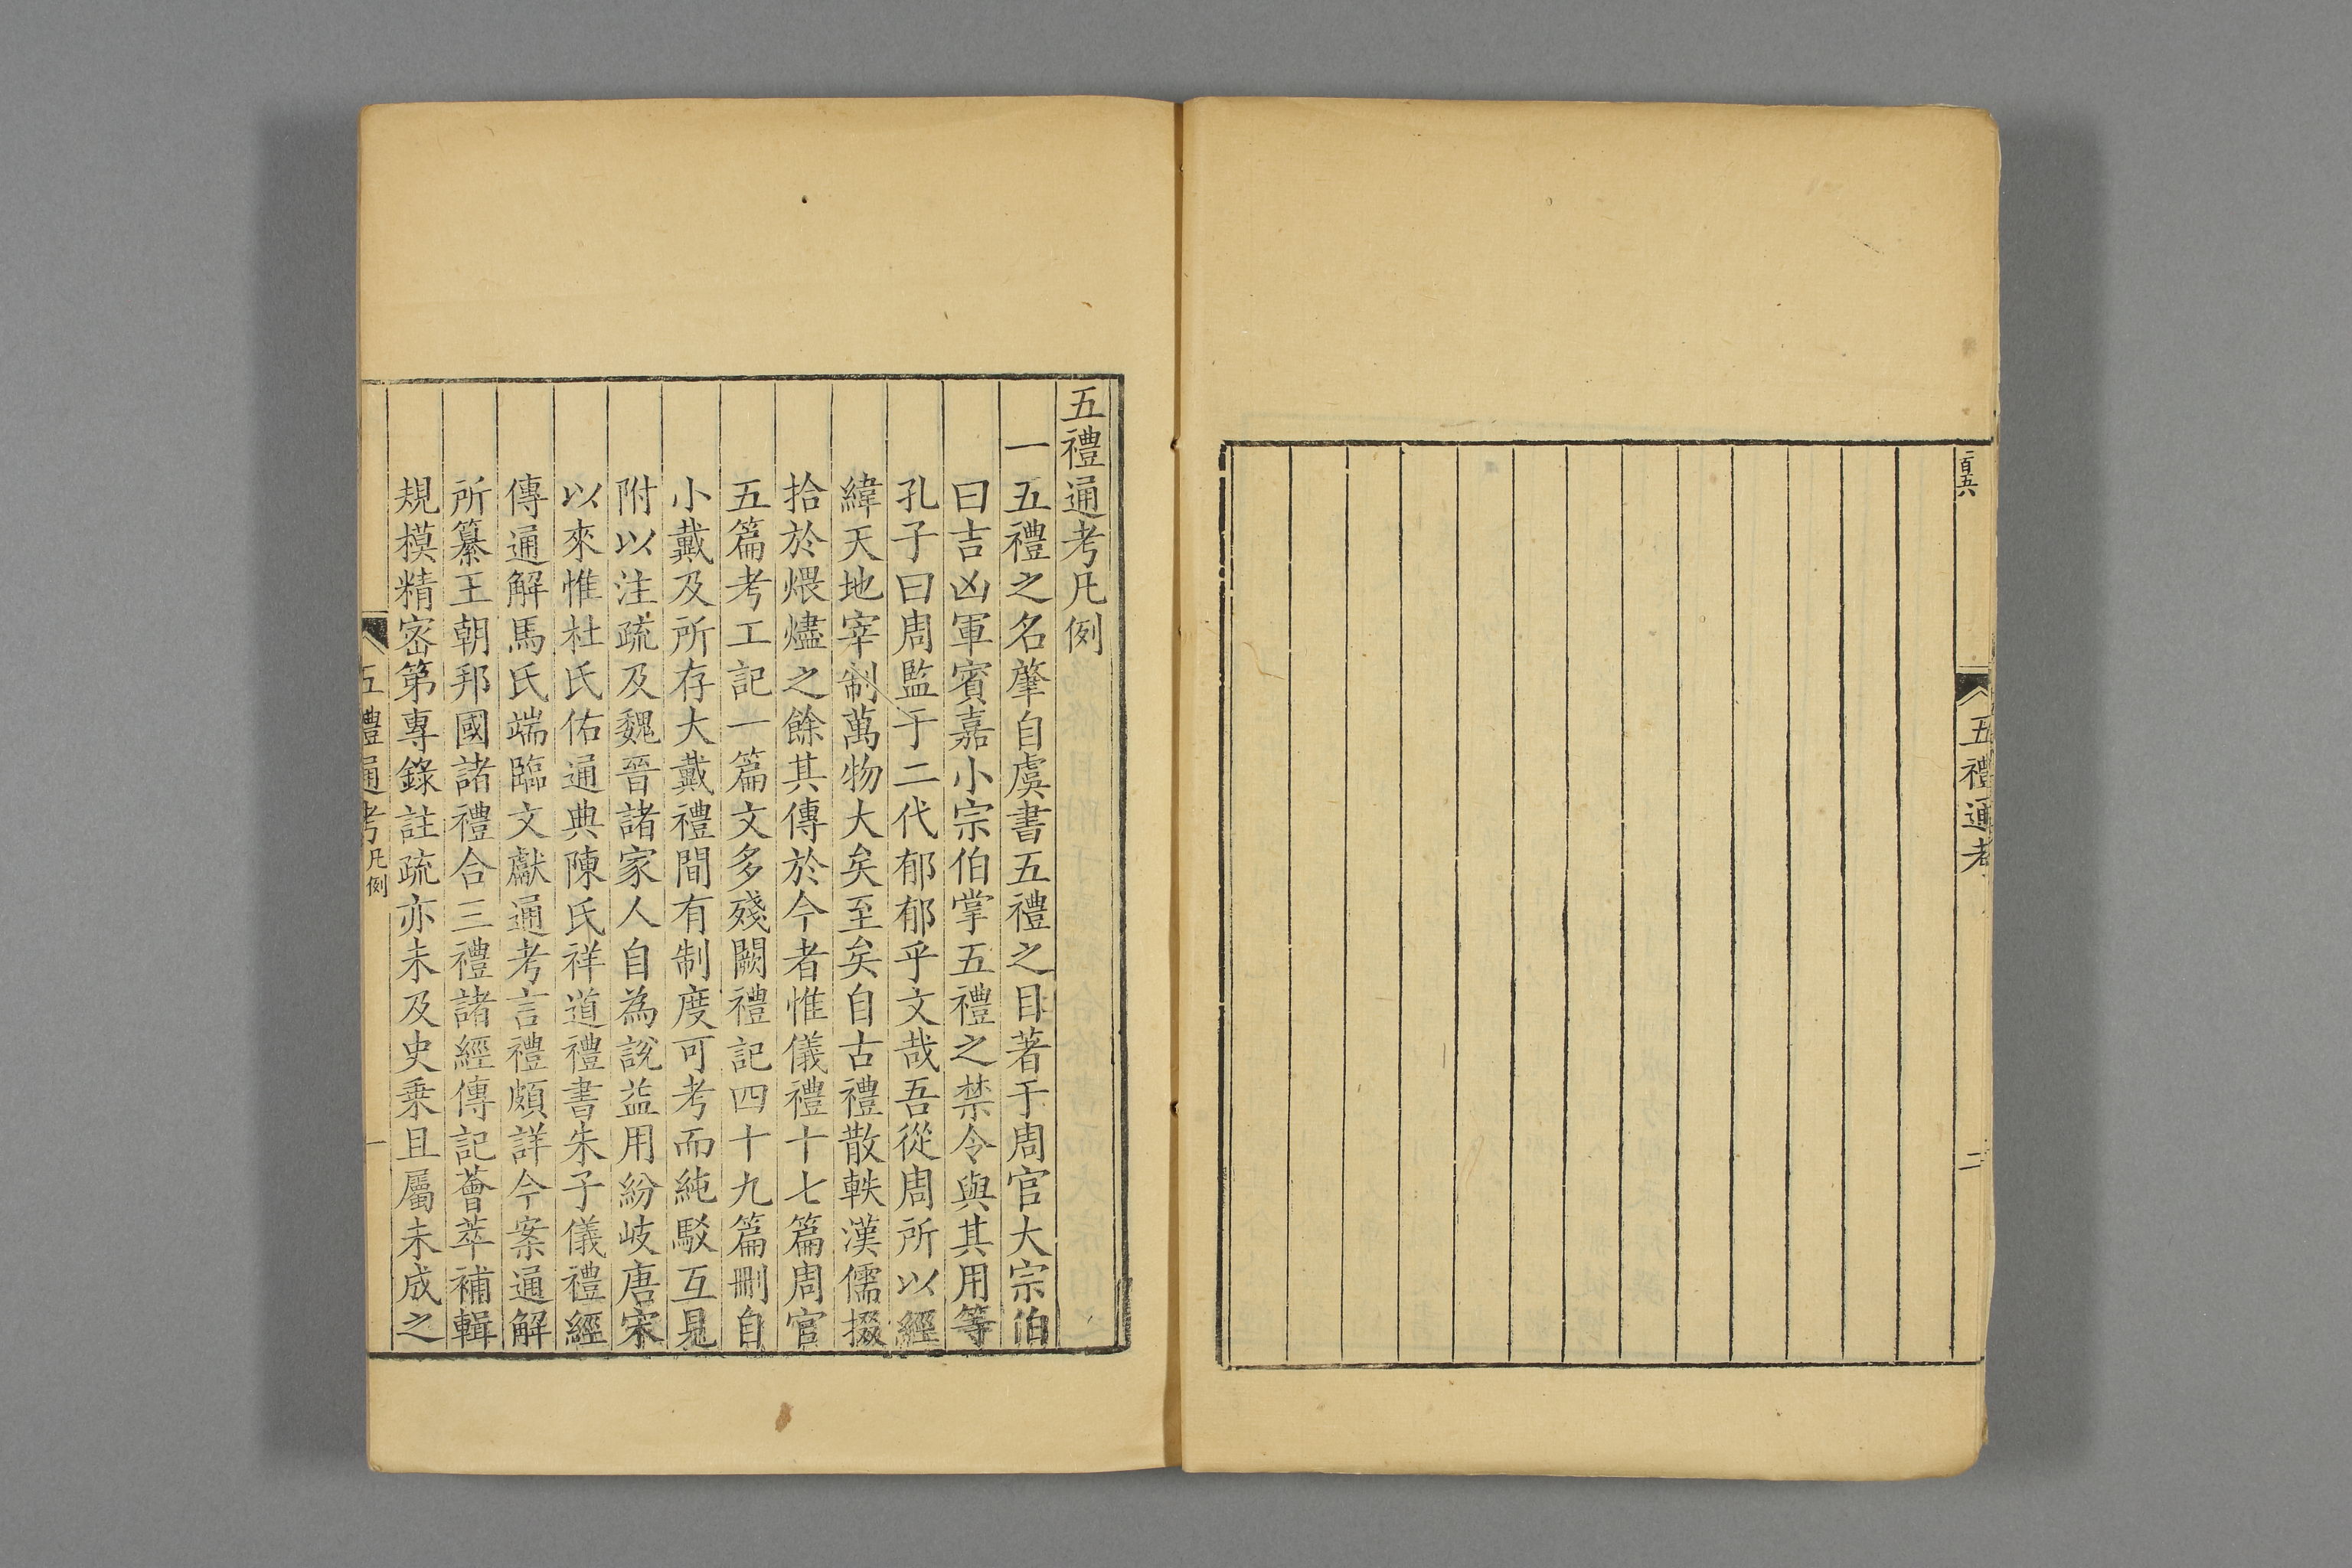 二百五六
五禮通考
二
五禮通考凡例
一五禮之名肇自虞書五禮之目著于周官大宗伯
曰吉凶軍賓嘉小宗伯掌五禮之禁令與其用等
孔子曰周監于二代郁郁乎文哉吾從周所以經
緯天地宰制萬物大矣至矣自古禮散軼漢儒掇
拾於煨燼之餘其傳於今者惟儀禮十七篇周官
五篇考工記一篇文多殘闕禮記四十九篇刪自
小戴及所存大戴禮間有制度可考而純駁互見
附以注疏及魏晉諸家人自為說益用紛岐唐宋
以來惟杜氏佑通典陳氏祥道禮書朱子儀禮經
傳通解馬氏端臨文獻通考言禮頗詳今案通解
所纂王朝邦國諸禮合三禮諸經傳記薈萃補輯
規模精密第專錄註疏亦未及史乗且屬未成之
五禮通考凡例
一